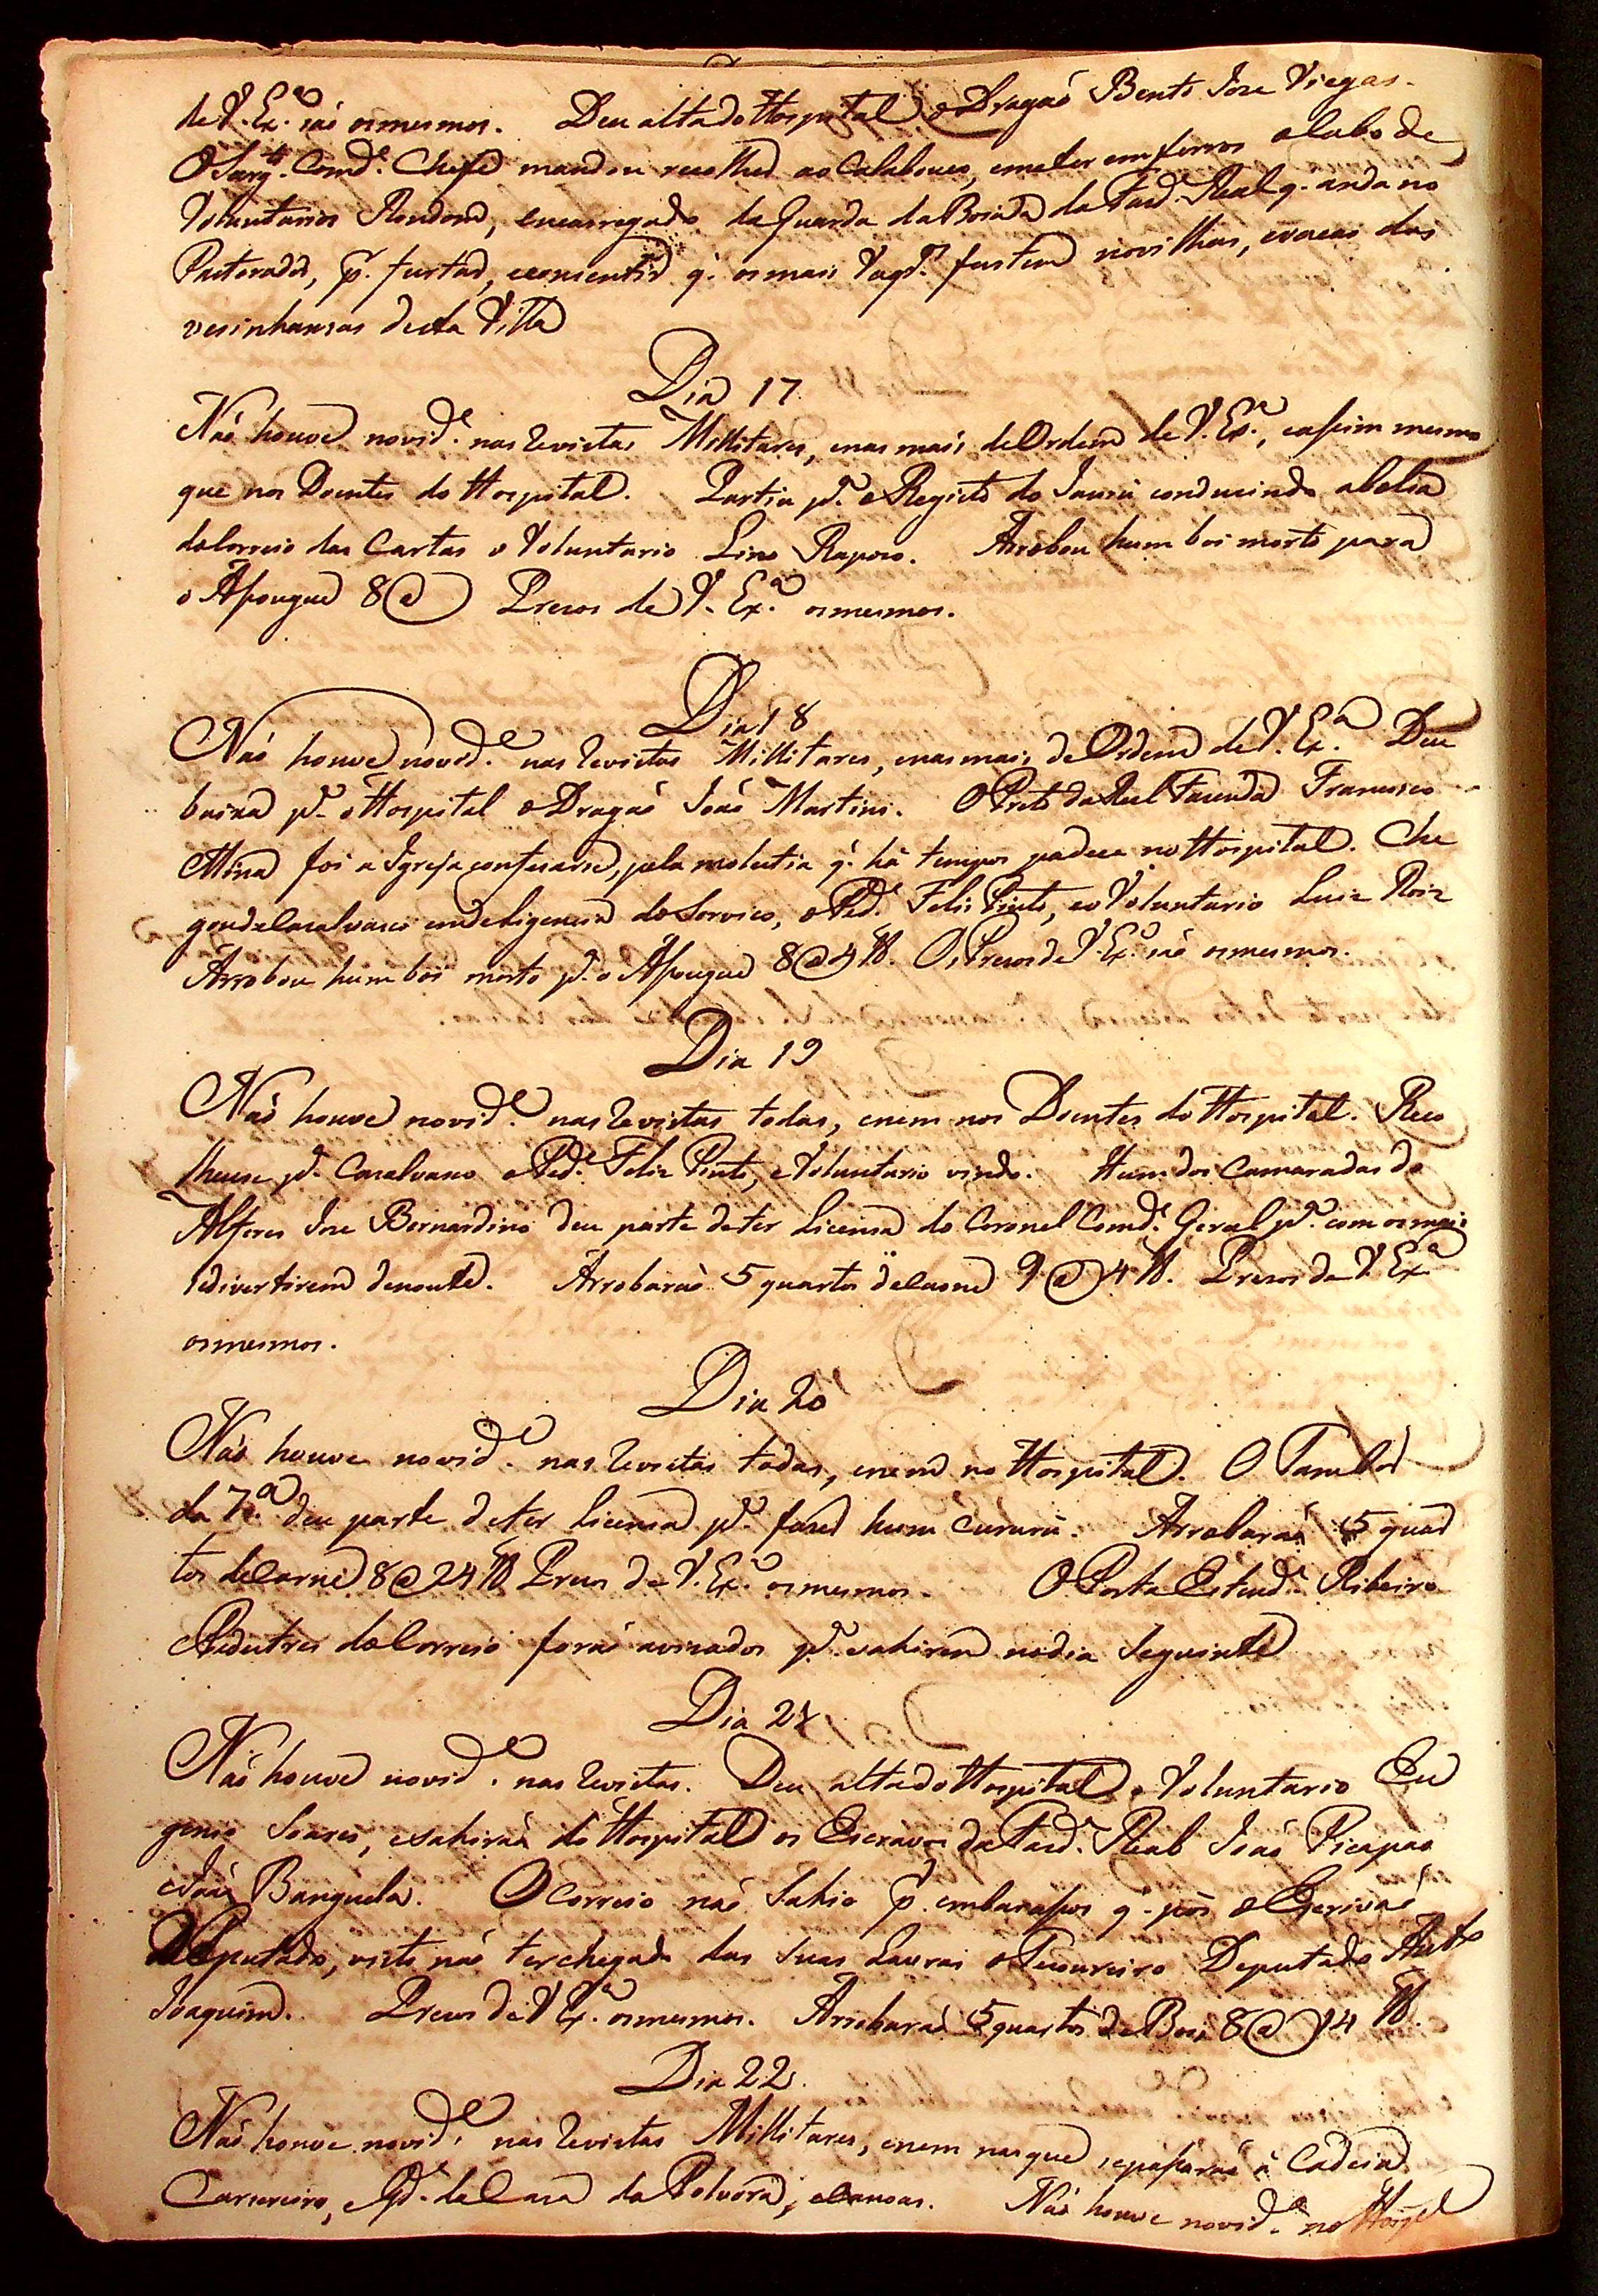 de V. Ex.ª saó os mesmos. Deu alta do Hospital o Dragaó Bento Joze Viegas.
O Sarg.to Comd.e Chefe mandou recolher ao Calabouco, e meter em ferros o Cabo de
Voluntarios Rondom, encarregado da Guarda da Boiada da Fazd.ª Real q. anda no
Pastorador, p. furtar, e consentir q. os mais furtem novilhas, e vacas das
vesinhansas desta Villa
Dia 17
Naó houve novid.e nas Revistas Millitares, e nas mais de Ordem de V. Ex.ª, e assim mesmo
que nos Doentes do Hospital. Partiu p.ª o Registo do Jaurú conduzindo a bolsa
do Correio das Cartas o Voluntario Lino Raposo. Arrobou hum boi morto para
o Assougue 8@ Prezos de V. Ex.ª os mesmos.
Dia 18
Naó houve novid.e nas Revistas Millitares, e nas mais de Ordem de V. Ex.ª Deu
baixa p.ª o Hospital o Dragaó Joaó Martins. O Preto da Real Fazenda Francisco
Mina foi a Igreja confesarse, pela molestia q. há tempos padece no Hospital. Che
gou de Casalvasco em deligencia do Servico, o Ped.e Felis Pinto, e o Voluntario Luiz Roiz
Arrobou hum boi morto p.ª o Assougue 8@4 lb. Os Prezos de V. Ex.ª saó os mesmos.
Dia 19
Naó houve novid.e nas Revistas todas, e nem nos Doentes do Hospital. Reco
lheuse p.ª Casalvasco o Ped.e Felix Pinto, e Voluntario vindo. Hum dos Camaradas do
Alferes Joze Bernardino deu parte de ter Licensa do Coronel Comd.e Geral p.ª com os mais
se divertirem de noute. Arrobaraó 5 quartos de carne 9@4 lb. Prezos de V. Ex.ª
os mesmos.
Dia 20
Naó houve novid.e nas Revistas todas, e nem no Hospital. O Tambor
da 7.ª deu parte de ter Licensa p.ª fazer hum Cururú. Arrobaraó 5 quar
tos de Carne 8@24 lb Prezos de V. Ex.ª os mesmos. O Porta Estend.e Ribeiro
e Pedestres do Correio foraó avizados p.ª sahirem no dia Seguinte
Dia 21
Naó houve novid.e nas Revistas. Deu alta do Hospital o Voluntario Eu
genio Soares, e sahiraó do Hospital os Escravos da Fazd.ª Real Joaó Picapao
e Joaó Banguela. O Correio naó Sahio p. embarassos q. pós o Escrivaó
Deputado, visto naó ter chegado das Suas Lavras o Tezoureiro Deputado Ant.o
Joaquim. Prezos de V Ex.ª os mesmos. Arrobaraó 5 quartos de Boi 8@14 lb.
Dia 22.
Naó houve novid.e nas Revistas Millitares, e nem nas que se passaraó á Cadeia
Carsereiro, e G.da da Casa da Polvora, e canoas. Naó houve novid.e no Hospal